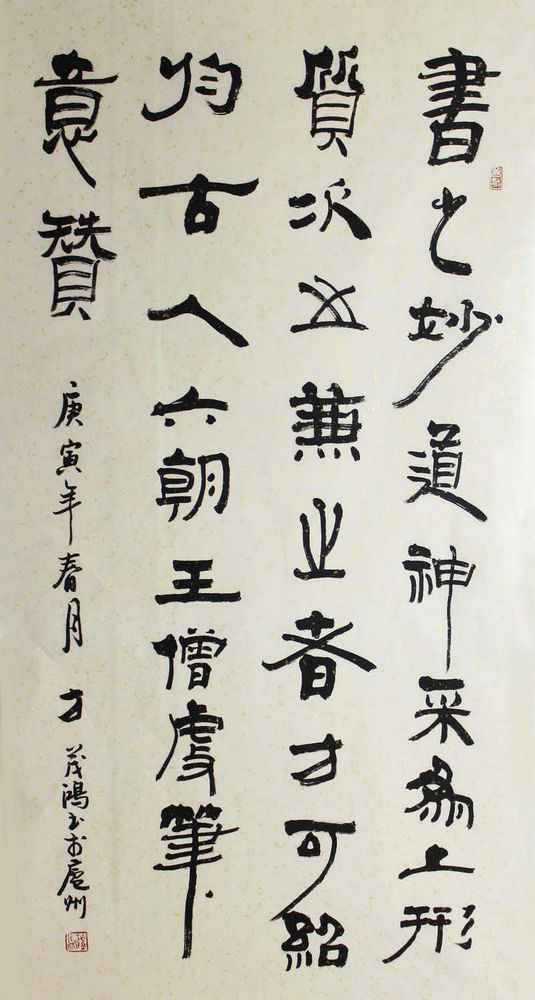 書之妙道神采爲上形
質次之兼之者方可紹
於古人六朝王僧虔筆
意贊
庚寅年春月方茂鴻书於廬州